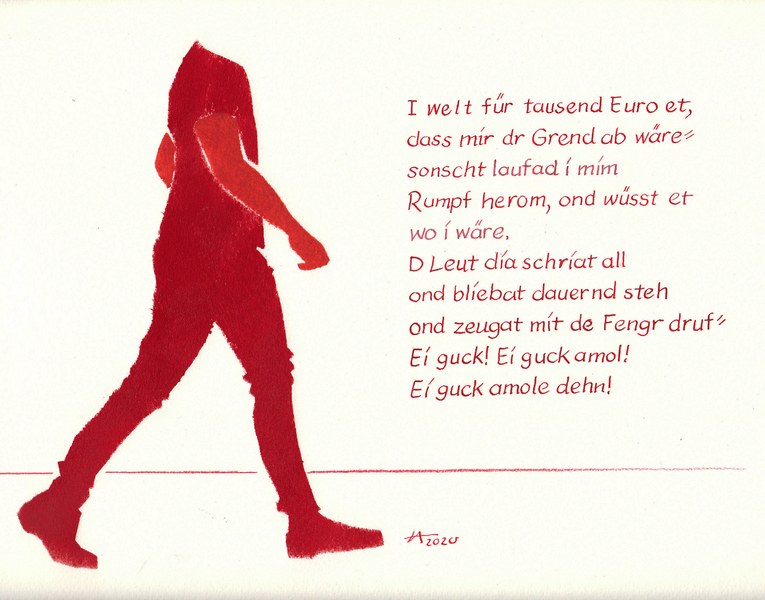 I welt für tausend Euro et,
dass mír dr Grend ab wäre =
sonscht laufad í mím
Rumpf herom, ond wüsst et
wo í wäre.
D Leut día schríat all
ond blíebat dauernd steh
ond zeugat mít de Fengr druf =
Eí guck! Eí guck amol!
Eí guck amole dehn!